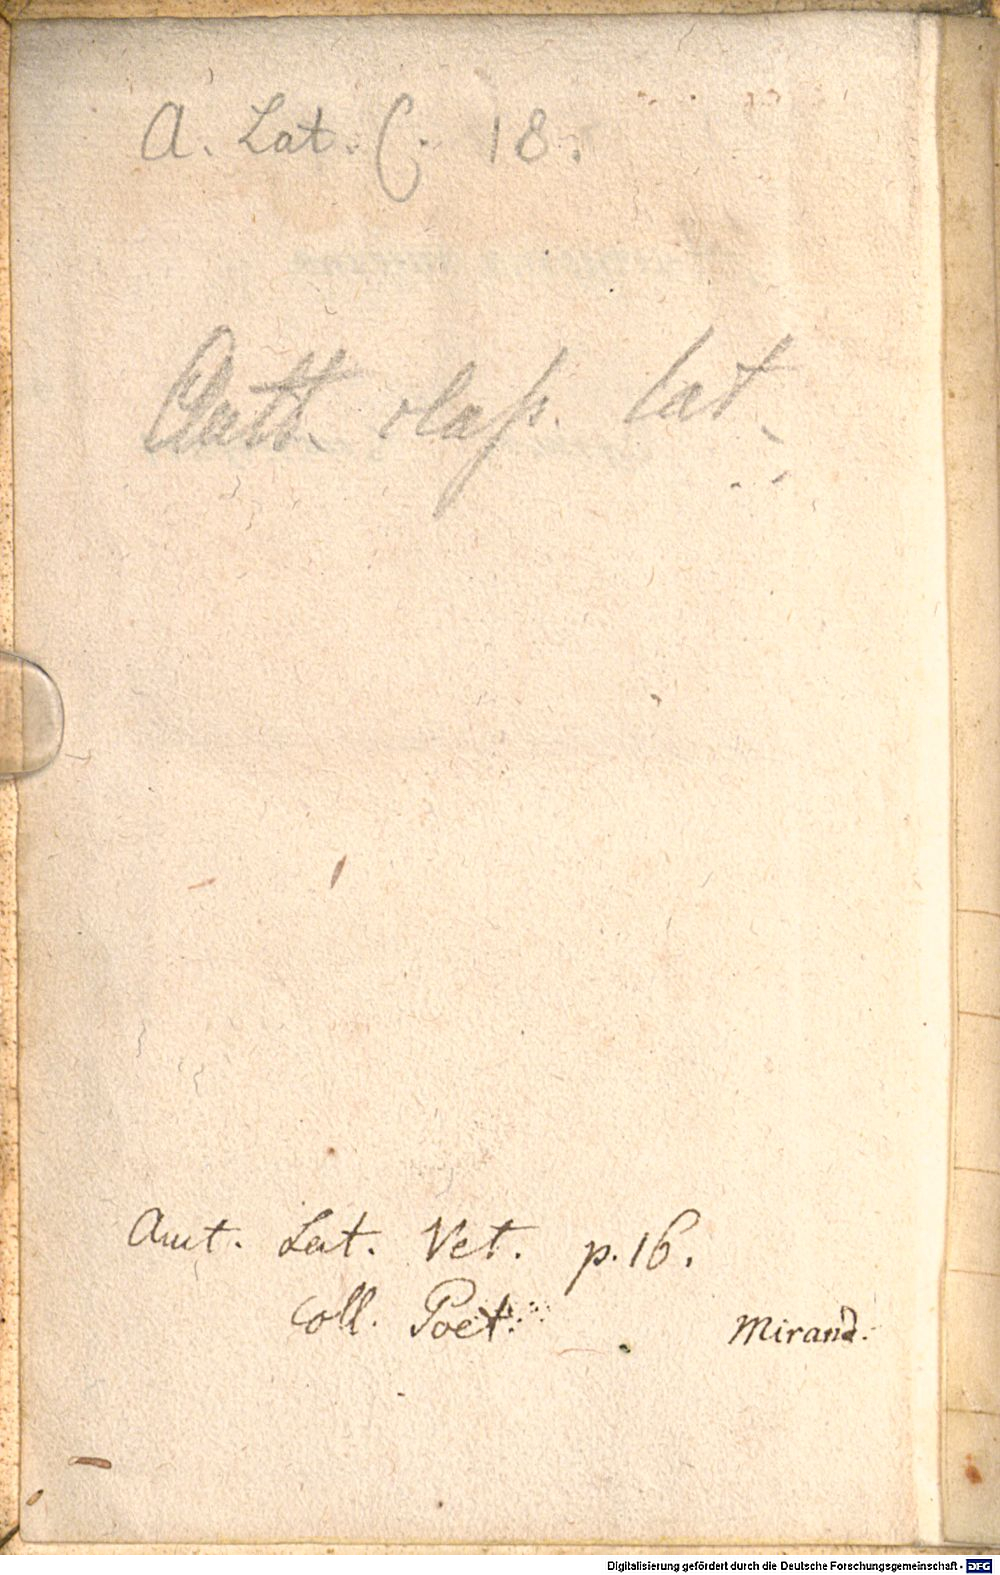 A. Lat. C. 18.
Autt. claſs. lat.
Aut. Lat. Vet. p. 16.
coll. Poet.
Mirand.
Digitalisierung gefördert durch die Deutsche Forschungsgemeinschaft - DFG